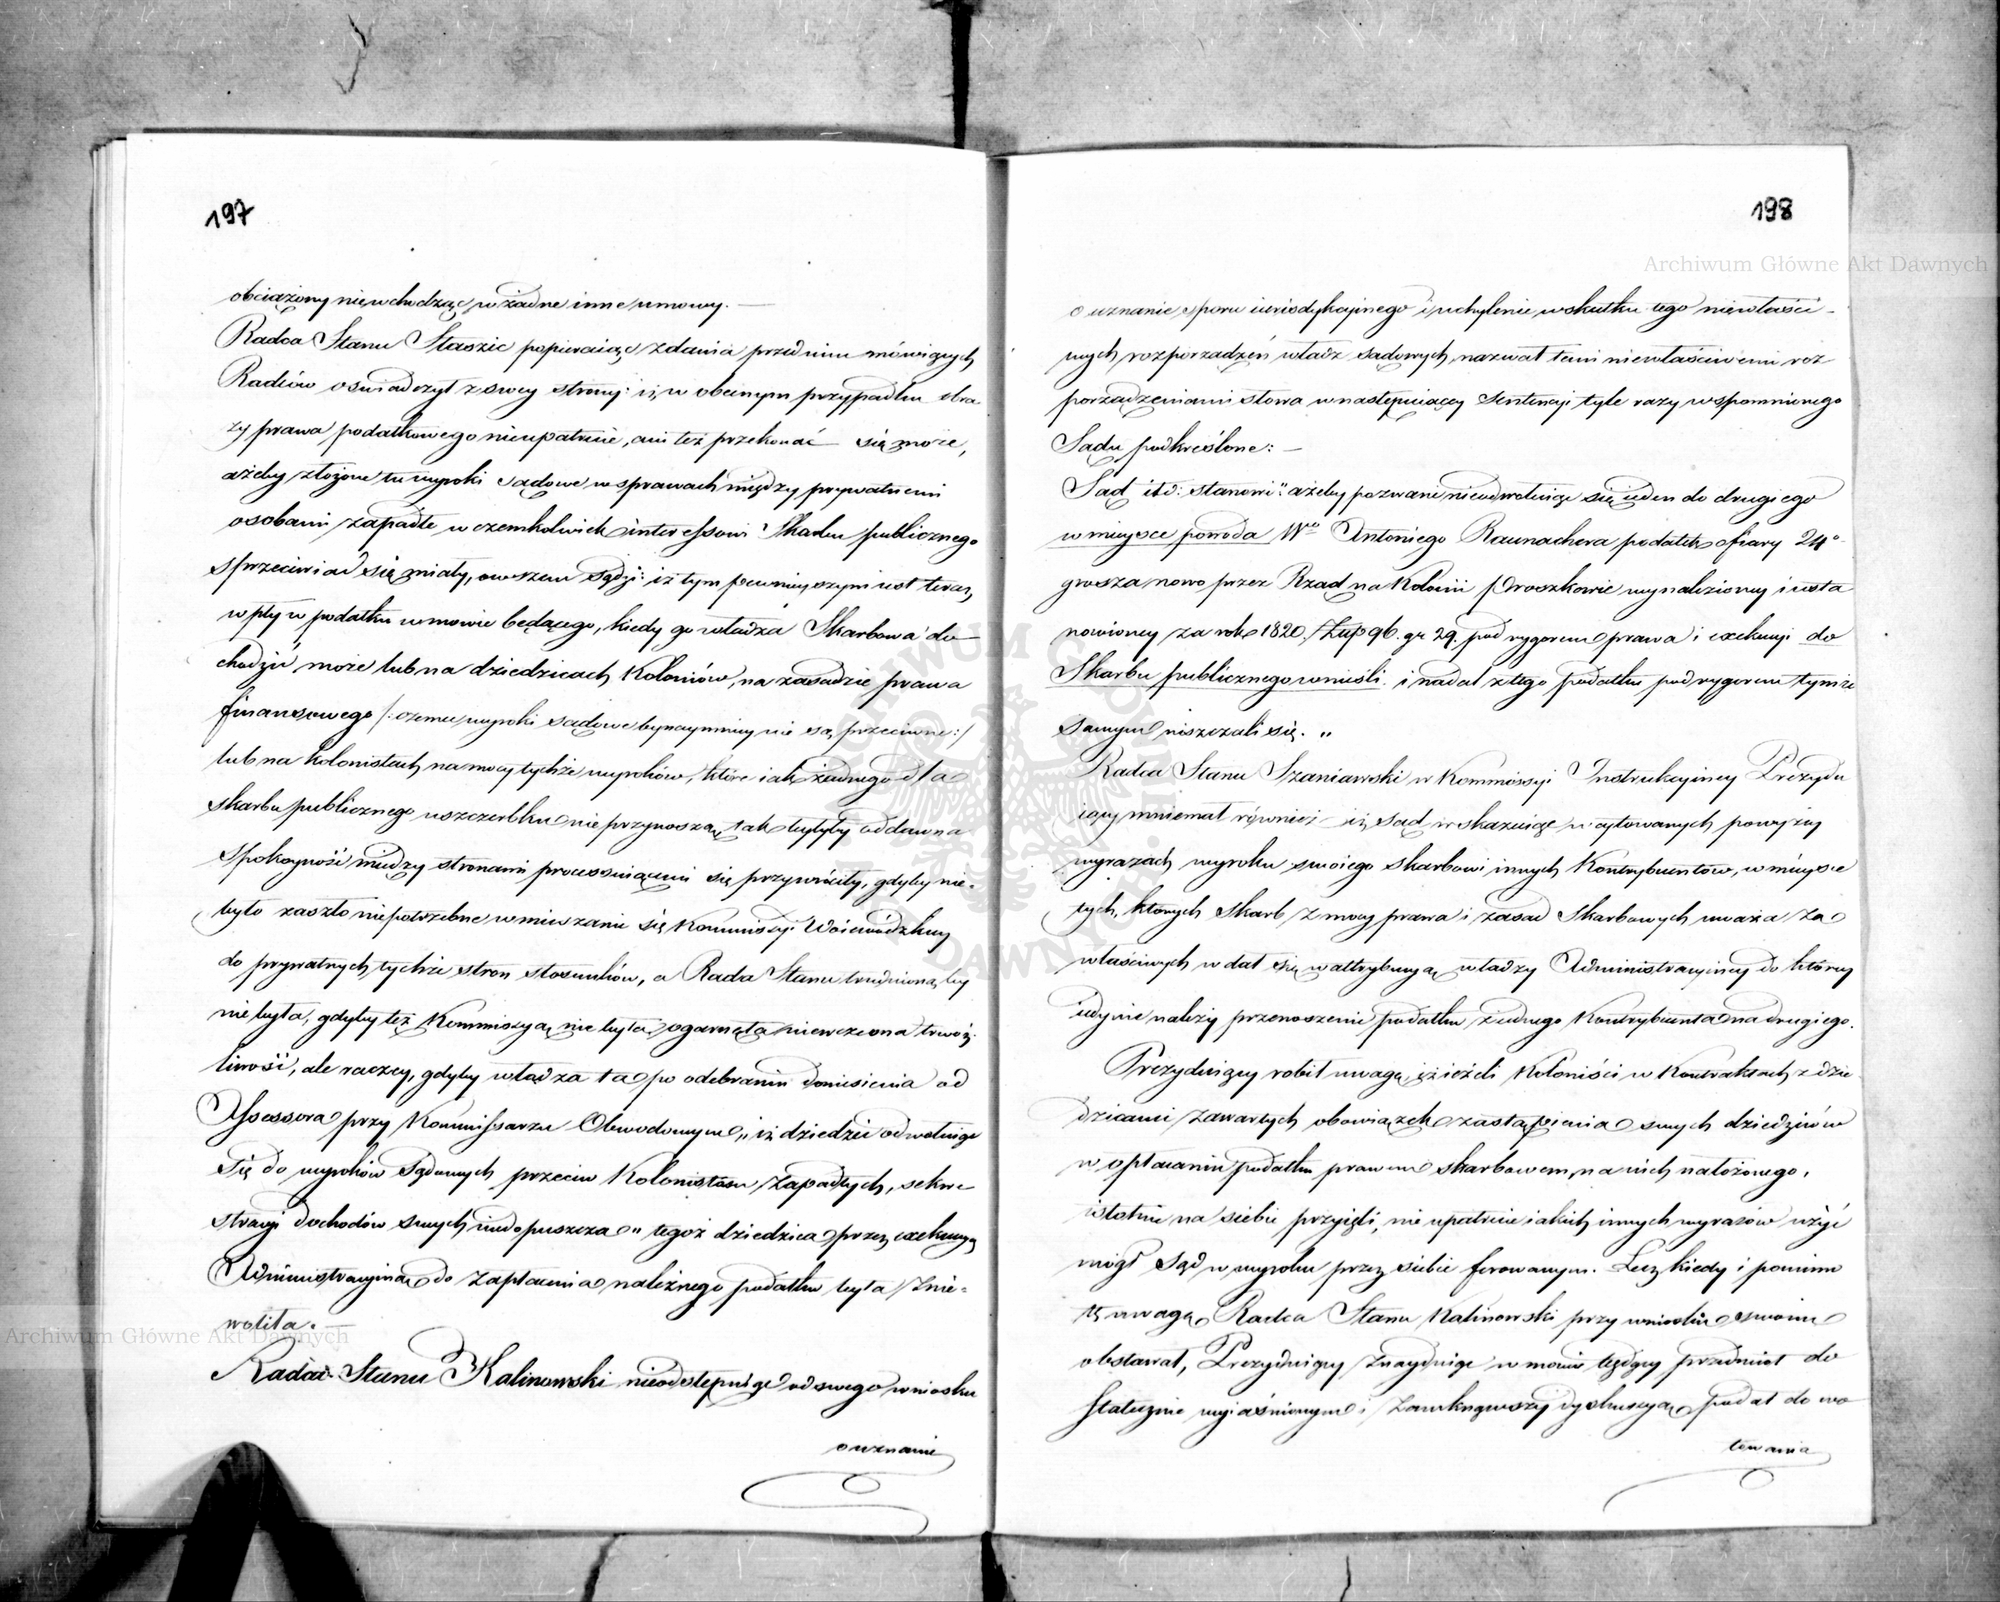 197
obciążony nie wchodząc w żadne inne umowy. —
Radca Stanu Staszic popieraiąc zdania przed nim mówiących
Radców oświadczył z swey strony: iż w obecnym przypadku obra
zy prawa podatkowego nieupatruie, ani też przekonać się może,
ażeby złożone tu wyroki sądowe w sprawach między prywatnemi
osobami zapadłe w czemkolwiek interessowi Skarbu publicznego
sprzeciwiać się miały, owszem sądzi: iż tym pewnieyszym iest teraz
wpływ podatku w mowie będącego, kiedy go władza Skarbowa do
chodzić może lub na dziedzicach Koloniów, na zasadzie prawa
finansowego /: czemu wyroki sądowe bynaymniey nie są przeciwne :/
lub na Kolonistach na mocy tychże wyroków, które iak żadnego dla
skarbu publicznego uszczerbku nie przynoszą, tak byłyby oddawna
spokoyność między stronami processuiącemi się przywróciły, gdyby nie-
było zaszło niepotrzebne wmieszanie się Kommissyi Woiewódzkiey
do prywatnych tychże stron stosunków, a Rada Stanu trudnioną by
nie była, gdyby też Kommissya nie była ogarnęta niewczesną trwoż-
liwość, ale raczey, gdyby władza ta po odebraniu doniesienia od
Assessora przy Kommissarzu Obwodowym „iż dziedzic odwołuiąc
się do wyroków Sądowych przeciw Kolonistom zapadłych, sekwe
stracyi dochodów swych niedopuszcza" tegoż dziedzica przez exekucyą
Administracyiną do zapłacenia należnego podatku była znie-
woliła. —
Radca Stanu Kalinowski nieodstępuiąc od swego wniosku
o uznanie
198
o uznanie sporu iurisdykcyinego i uchylenie w skutku tego niewłaści-
wych rozporządzeń władz sądowych, nazwał temi niewłaściwemi roz
porządzeniami słowa w następuiącey Sentencyi tyle razy wspomnionego
Sądu podkreślone: —
Sąd itd: stanowi: „ażeby pozwani nieodwołuiąc się ieden do drugiego
w mieysce powoda Wo Antoniego Raunachera podatek ofiary 24o
grosza nowo przez Rząd na Kolonii Proszkowie wynaleziony i usta
nowioney za rok 1820. Złp 96. gr 29. pod rygorem prawa i exekucyi do
Skarbu publicznego wnieśli i nadal z tego podatku pod rygorem tymże
samym niszczali się. „
Radca Stanu Szaniawski w Kommissyi Instrukcyiney Prezydu
iący mniemał również iż sąd wskazuiąc w cytowanych powyżey
wyrazach wyroku swoiego skarbowi innych Kontrybuentów, w mieysce
tych, których Skarb z mocy prawa i zasad Skarbowych uważa za
właściwych wdał się w attrybucyą władzy Administracyiney do którey
iedynie należy przenoszenie podatku z iednego Kontrybuenta na drugiego.
Prezyduiący robił uwagę, iż ieżeli Koloniści w Kontraktach z dzie
dzicami zawartych obowiązek zastąpienia swych dziedziców
w opłacaniu podatku prawem skarbowem na nich nałożonego,
istotnie na siebie przyięli, nie upatruie iakich innych wyrazów użyć
mógł Sąd w wyroku przez siebie ferowanym. Lecz kiedy i pomimo
tę uwagę Radca Stanu Kalinowski przy wniosku swoim
obstawał, Prezyduiący znayduiąc w mowie będący przedmiot do
statecznie wyiaśnionym i zamknąwszy dyskussyą podał do wo
towania
Archiwum Główne Akt Dawnych
Archiwum Główne Akt Dawnych